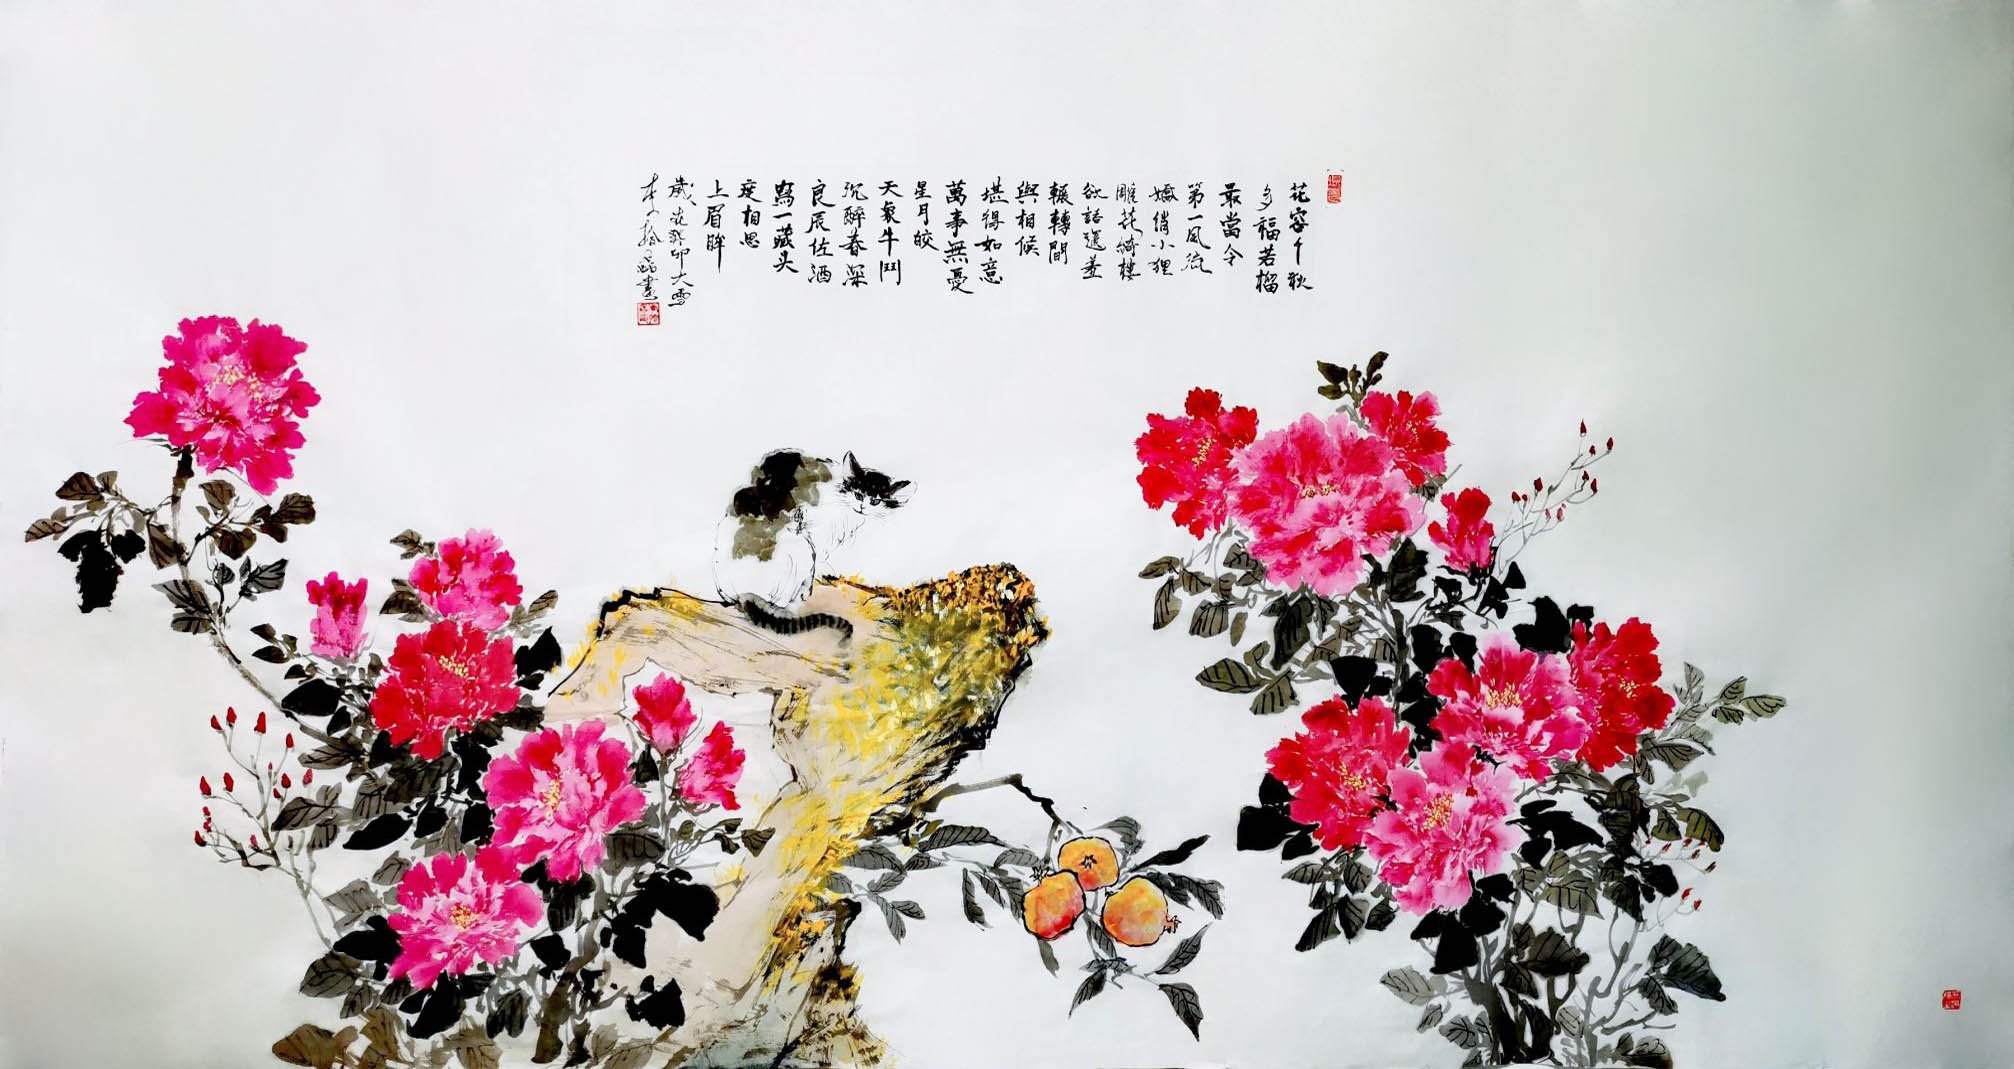 花容千秋
多福若榴
最當令
第一風流
嬌俏小狸
雕花綺樓
欲語還羞
輾轉間
與相候
堪得如意
萬事無憂
星月皎
天象牛鬥
沉醉春深
良辰佐酒
寫一藏头
度相思
上眉眸
歲在癸卯大雪
畫